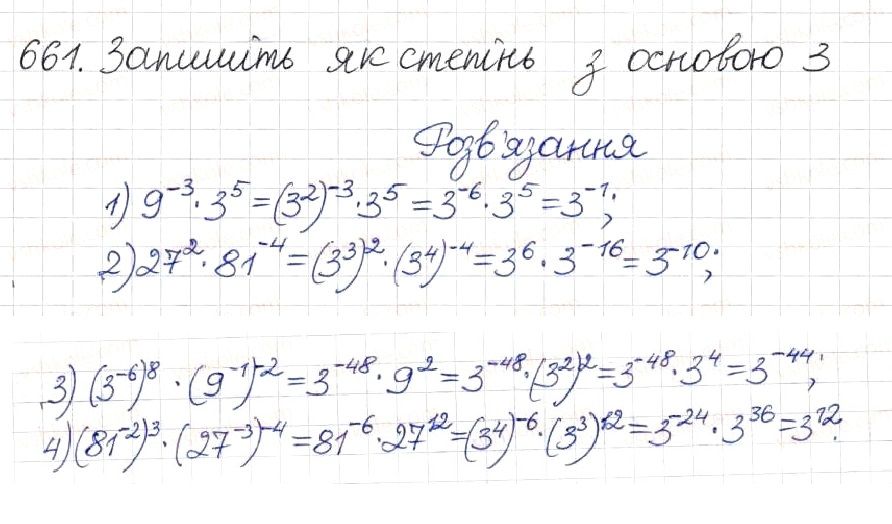 661. Запишіть як степінь з основою 3
Розв'язання
1) 9⁻³ · 3⁵ = (3²)⁻³ · 3⁵ = 3⁻⁶ · 3⁵ = 3⁻¹;
2) 27² · 81⁻⁴ = (3³)² · (3⁴)⁻⁴ = 3⁶ · 3⁻¹⁶ = 3⁻¹⁰;
3) (3⁻⁶)⁸ · (9⁻¹)⁻² = 3⁻⁴⁸ · 9² = 3⁻⁴⁸ · (3²)² = 3⁻⁴⁸ · 3⁴ = 3⁻⁴⁴;
4) (81⁻²)³ · (27⁻³)⁻⁴ = 81⁻⁶ · 27¹² = (3⁴)⁻⁶ · (3³)¹² = 3⁻²⁴ · 3³⁶ = 3¹².